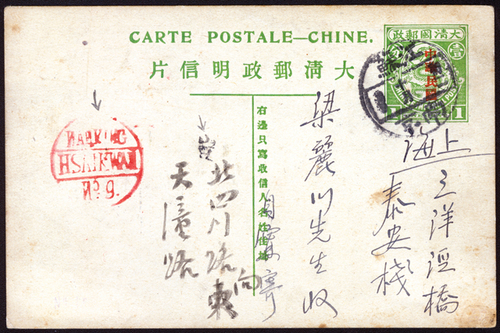 CARTE POSTALE—CHINE.
片信明政郵清大
政郵國清大
壹
中華民國
1
右邊只寫收信人名姓住址
上海
三洋涇橋
泰安棧
梁麗川先生收
北四川路東向
天潼路
NANKING
HSAIKWAN
No 9.